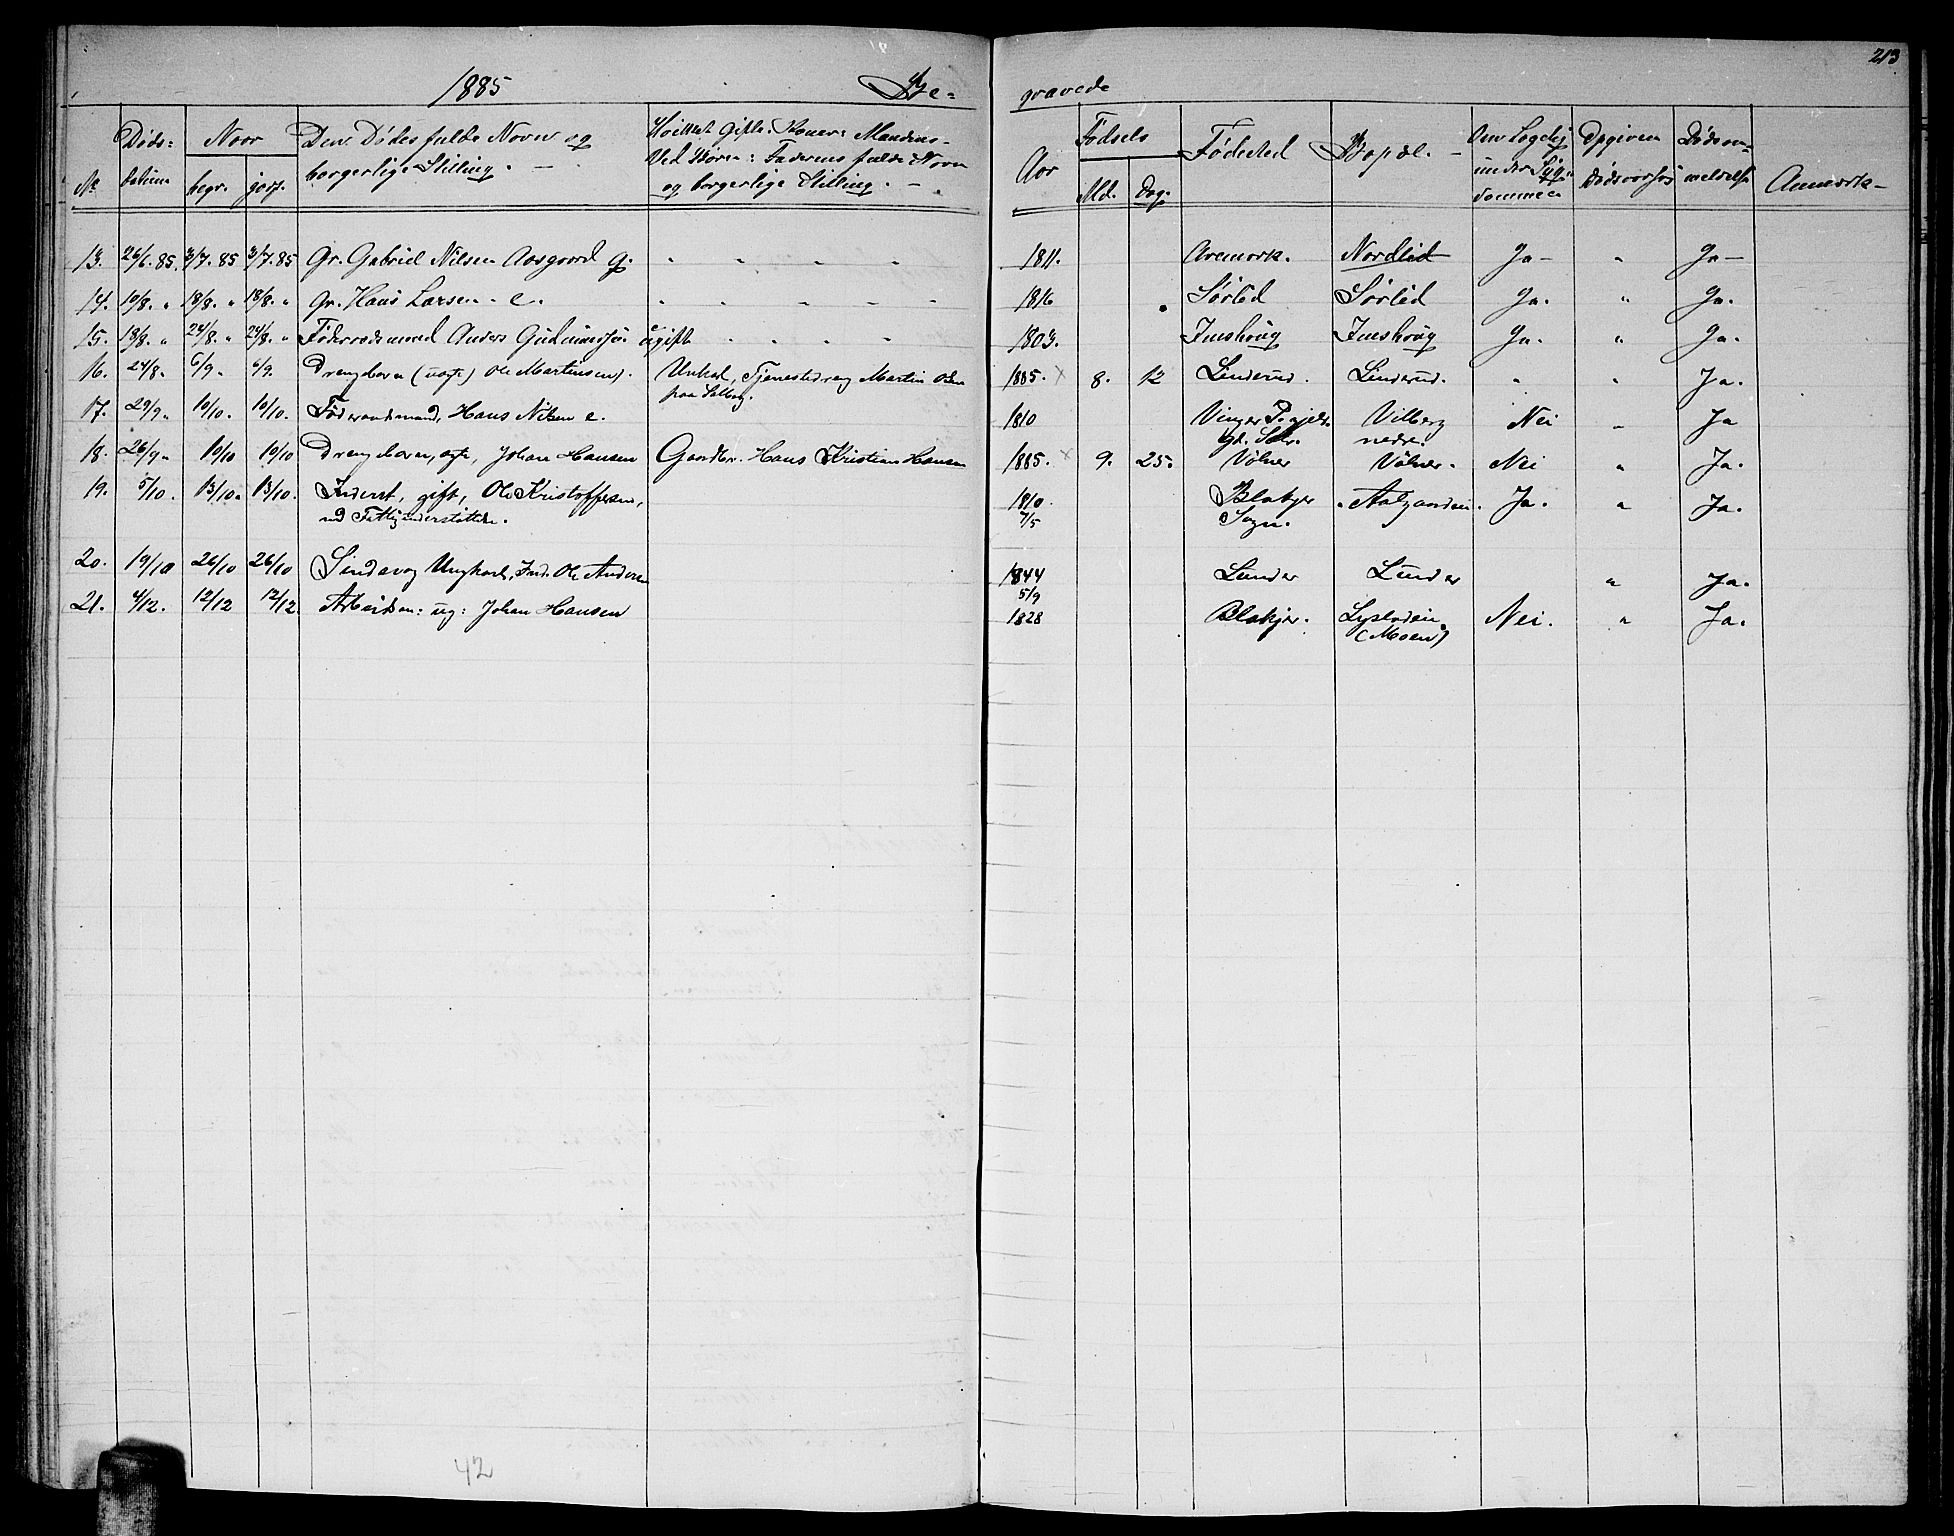 1885 Be-
gravede 213
No Døds-datum Naar begr. jorf. Den Dødes fulde Navn og borgerlige Stilling. Ved Børn: Faderens fulde Navn og borgerlige Stilling.
Fødsels Aar Md. Dag. Fødested Bopæl. Om Lægehj. under Sygdommen Opgiven Dødsaarsag Dødsanmeldelse Anmærk-
13. 26/6. 85. 3/7. 85 3/7. 85 Gr. Gabriel Nilsen Aasgaard g. " " " " 1811. Aremark. Nordlid Ja- " Ja-
14. 10/8. " 18/8. " 18/8. " Gr. Hans Larsen - e. " " " " " 1816 Sørlid Sørlid Ja. " Ja.
15. 18/8. " 24/8. " 24/8. " Føderaadsmand Anders Gudmundsen ugift " " " " 1803. Imshoug Imshoug Ja. " Ja.
16. 24/8. " 6/9. " 6/9. Drengebarn (uægte) Ole Martinsen). Unkarl, Tjenestedreng Martin Olsen
paa Salberg. 1885. x 8. 12 Linderud. Linderud. " " Ja.
17. 29/9. " 10/10. 10/10. Føderaadsmand, Hans Nilsen e. 1810 Vinger Pgjeld. Vilberg nedre. Nei " Ja
18. 26/9. " 10/10 10/10 Drengebarn, ægte, Johan Hansen Gaardbr. Hans Kristian Hansen 1885. x 9. 25. Vølner Vølner. Nei " Ja.
19. 5/10. 13/10. 13/10. Inderst, gift, Ole Kristoffersen,
ved Fattigunderstøttelse. 1810. 7/5 Blakjer Sogn. Ja. " Ja.
20. 19/10 26/10 26/10 Sindsvag Ungkarl, Ind. Ole Andersen 1844 5/9 Lunder Lunder " Ja.
21. 4/12. 12/12 12/12. Arbeidsm: ug: Johan Hansen 1828 Blakjer. (Moen) Nei. " Ja.
42